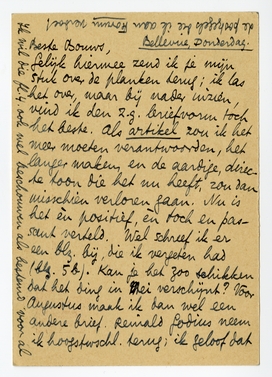 Bellevue, Donderdag.
Beste Bouws,
Gelijk hiermee zend ik je mijn
stuk over de planken terug; ik las
het over, maar bij nader inzien,
vind ik den z.g. briefvorm toch
het beste. Als artikel zou ik het
meer moeten verantwoorden, het
langer maken, en de aardige, direc-
te toon die het nu heeft, zou dan
misschien verloren gaan. Nu is
het én positief, én toch en pas-
sant verteld. Wel schreef ik er
een blz. bij, die ik vergeten had
(blz. 5b). Kan je het zoo schikken
dat het ding in Mei verschijnt? Voor
Augustus maak ik dan wel een
andere brief. Remald Godius neem
ik hoogstwschl. terug; ik geloof dat
de postzegels die ik aan
Ik wil die fl. 4 ook wel beschouwen als bestemd voor al